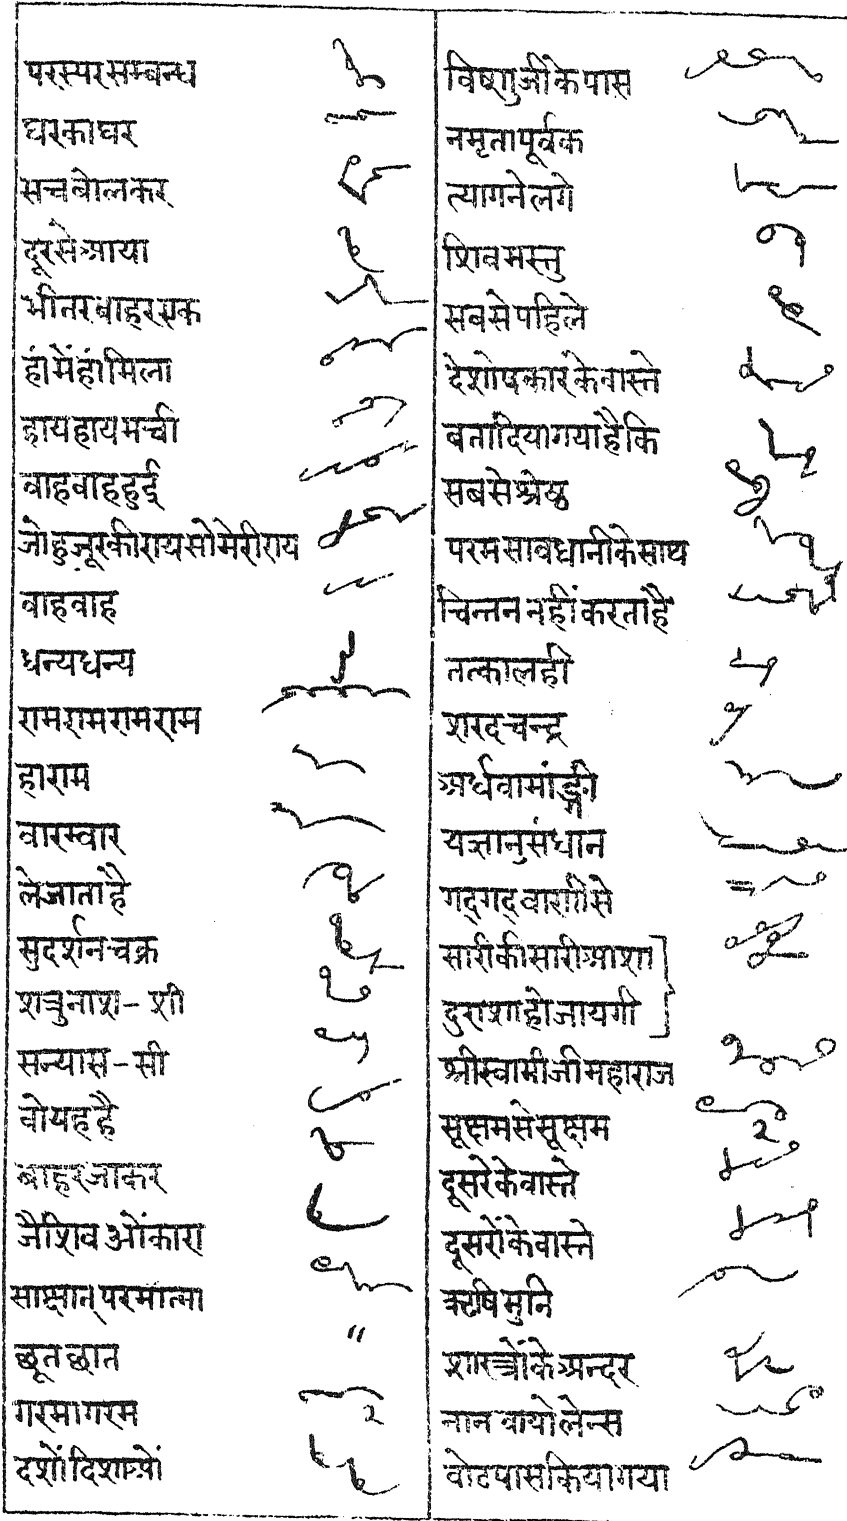 परस्पर सम्बन्ध
घर का घर
सच बोलकर
दूर से आया
भीतर बाहर एक
हां में हां मिला
हाय हाय मची
वाह वाह हुई
जो हुजूर की राय सो मेरी राय
वाह वाह
धन्य धन्य
राम राम राम राम
हा राम
वारम्वार
ले जाता है
सुदर्शन चक्र
शत्रुनाश - शी
सन्यास - सी
वो यह है
बाहर जाकर
जै शिव ओंकारा
साक्षात् परमात्मा
छूत छात
गरमागरम
दशों दिशाओं
विष्णु जी के पास
नमृता पूर्वक
त्यागने लगे
शिवमस्तु
सब से पहिले
देशोपकार के वास्ते
बता दिया गया है कि
सब से श्रेष्ठ
परम सावधानी के साथ
चिन्तन नहीं करता है
तत्काल ही
शरद चन्द्र
अर्ध वामांङ्गी
यज्ञानुसंधान
गद्गद् वाणी से
सारी की सारी आशा
दुराशा हो जायगी
श्री स्वामी जी महाराज
सूक्षम से सूक्षम
दूसरे के वास्ते
दूसरों के वास्ते
ऋषि मुनि
शास्त्रों के अन्दर
नान वायोलेन्स
वोट पास किया गया